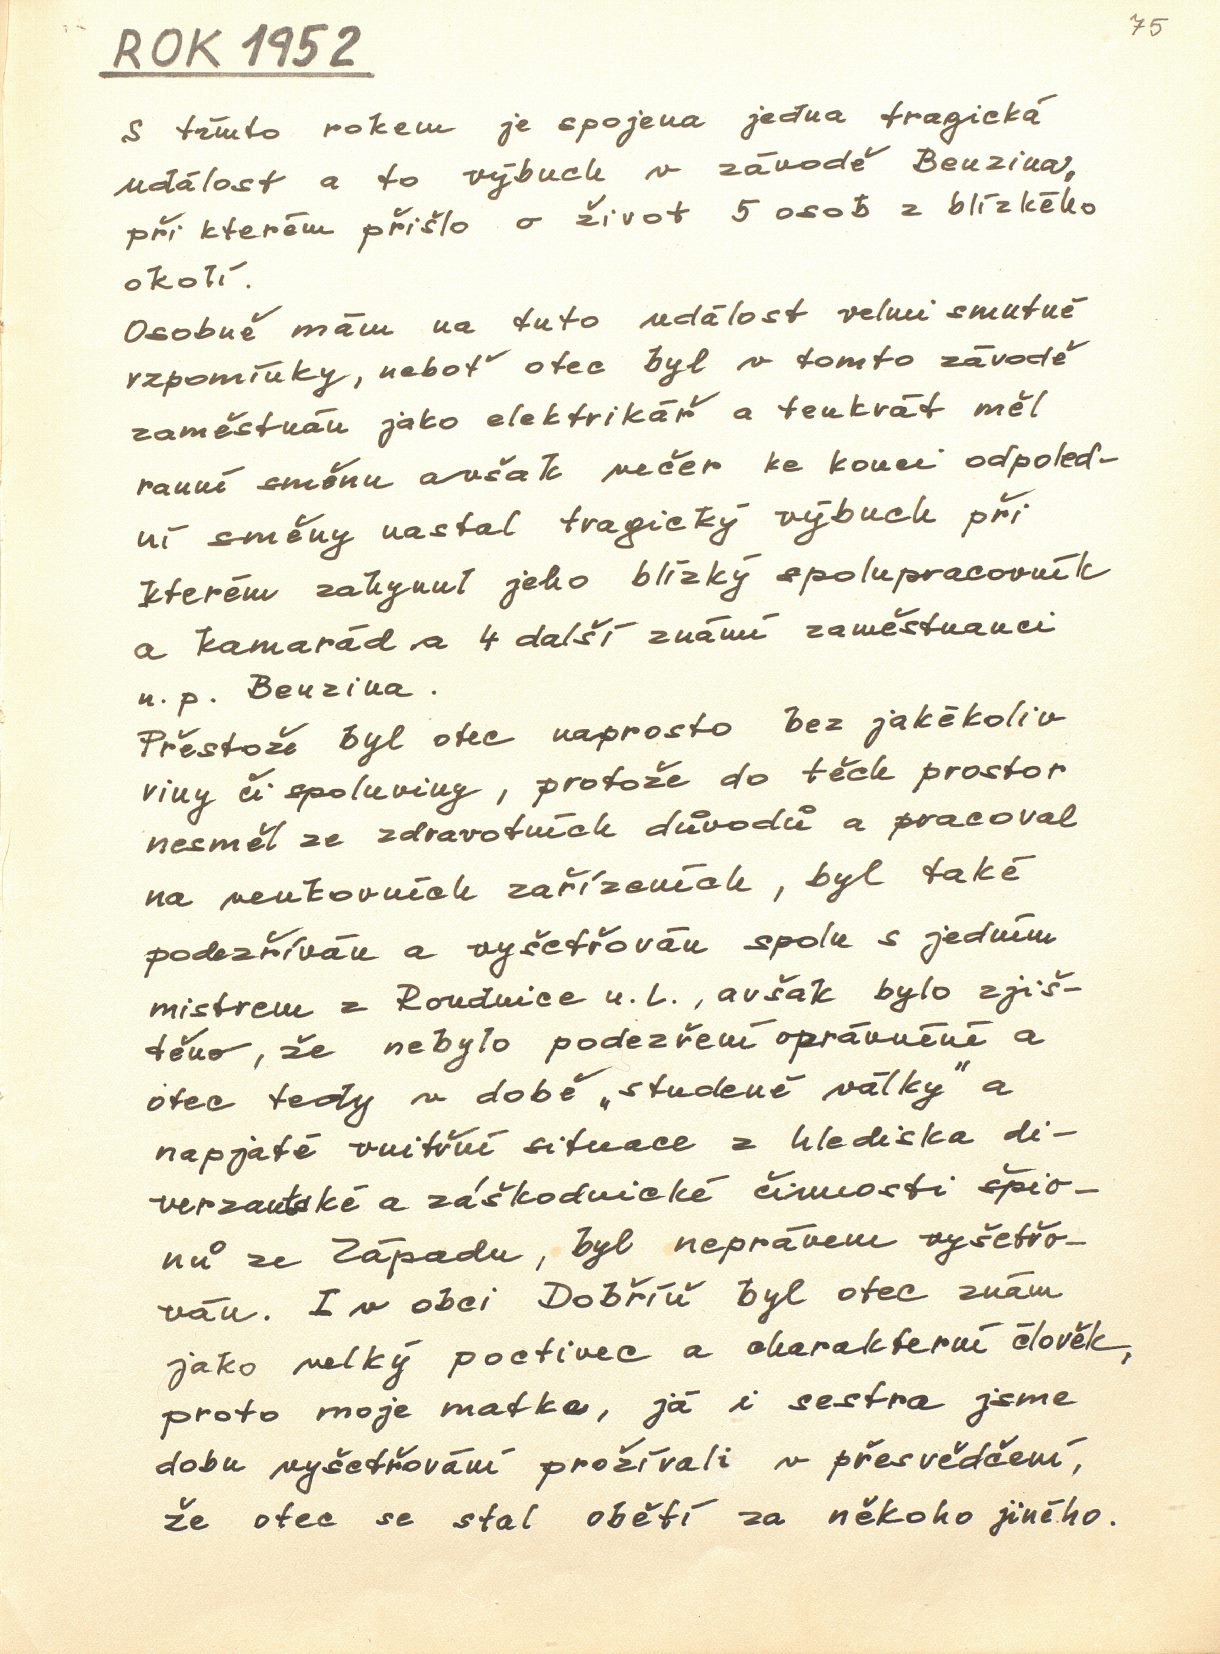 75
ROK 1952
S tímto rokem je spojena jedna tragická
událost a to výbuch v závodě Benzina,
při kterém přišlo o život 5 osob z blízkého
okolí.
Osobně mám na tuto událost velmi smutné
vzpomínky, neboť otec byl v tomto závodě
zaměstnán jako elektrikář a tenkrát měl
ranní směnu avšak večer ke konci odpoled-
ní směny nastal tragický výbuch při
kterém zahynul jeho blízký spolupracovník
a kamarád a 4 další známí zaměstnanci
n.p. Benzina.
Přestože byl otec naprosto bez jakékoliv
viny či spoluviny, protože do těch prostor
nesměl ze zdravotních důvodů a pracoval
na venkovních zařízeních, byl také
podezříván a vyšetřován spolu s jedním
mistrem z Roudnice n.L., avšak bylo zjiš-
těno, že nebylo podezření oprávněné a
otec tedy v době „studené války" a
napjaté vnitřní situace z hlediska di-
verzantské a záškodnické činnosti špio-
nů ze Západu, byl neprávem vyšetřo-
ván. I v obci Dobříň byl otec znám
jako velký poctivec a charakterní člověk,
proto moje matka, já i sestra jsme
dobu vyšetřování prožívali v přesvědčení,
že otec se stal obětí za někoho jiného.